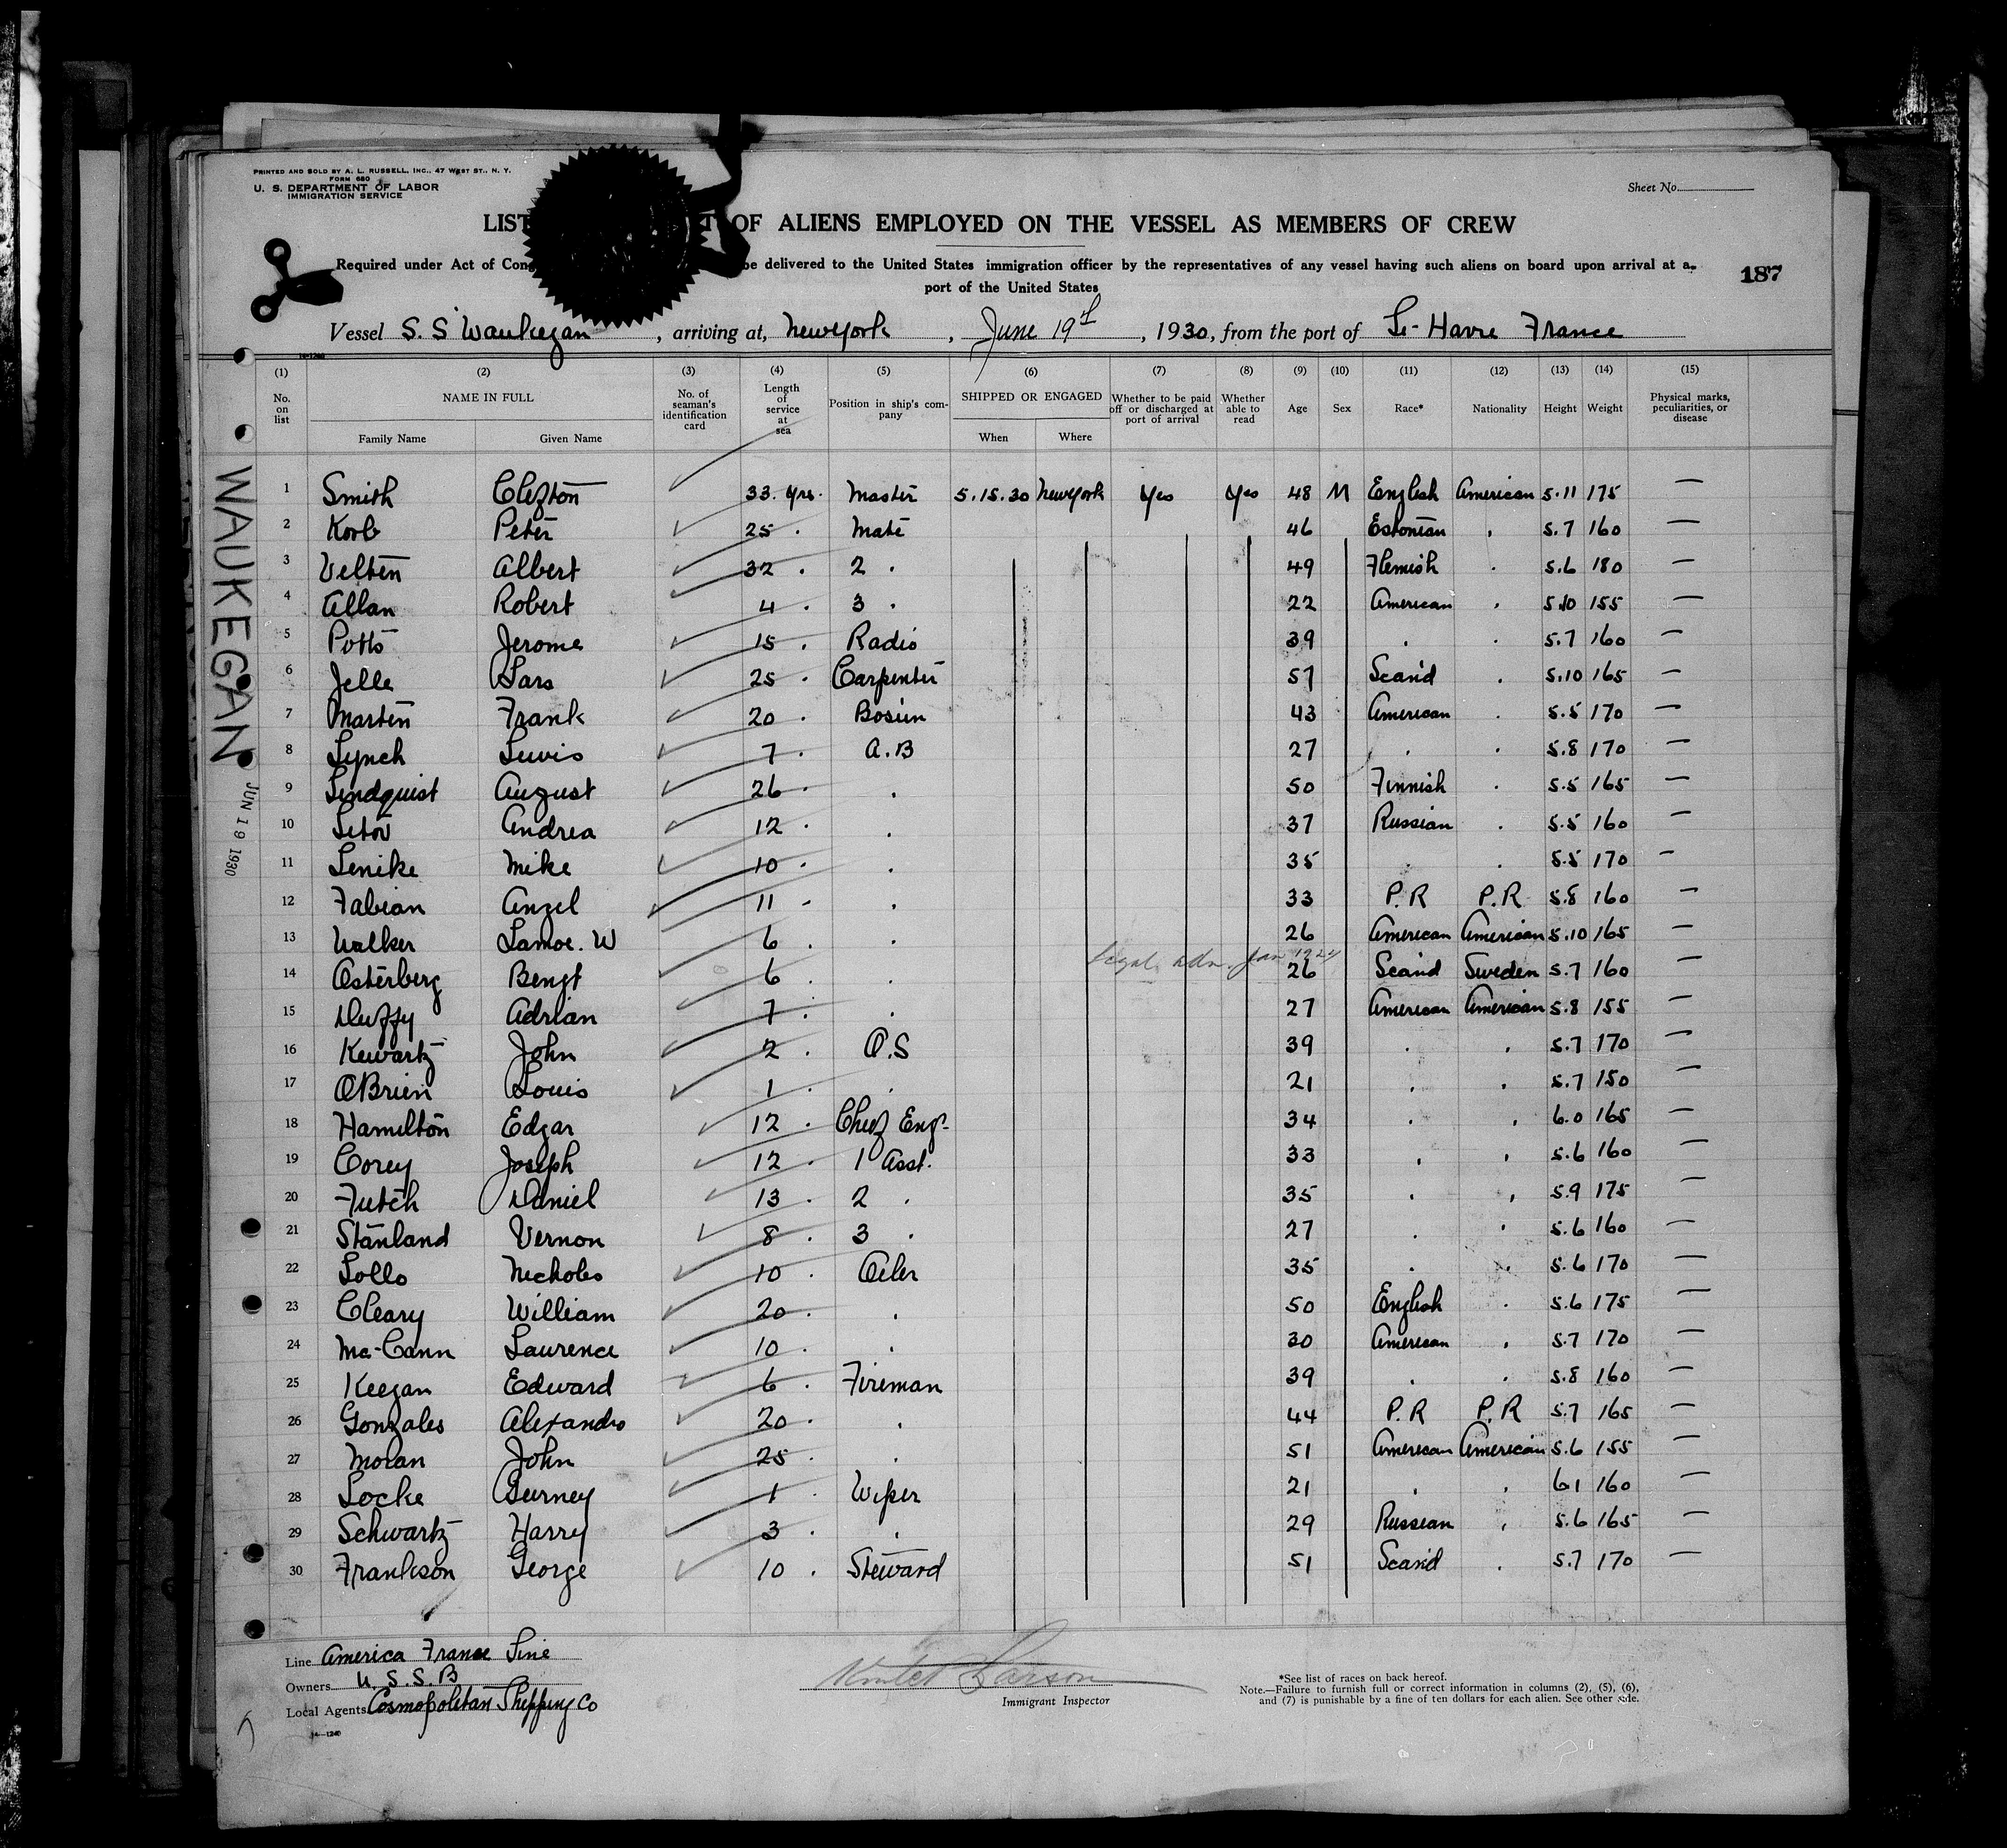 PRINTED AND SOLD BY A. L. RUSSELL, INC., 47 WEST ST., N. Y.
FORM 680
U. S. DEPARTMENT OF LABOR
IMMIGRATION SERVICE
Sheet No.
LIST OF ALIENS EMPLOYED ON THE VESSEL AS MEMBERS OF CREW
Required under Act of be delivered to the United States immigration officer by the representatives of any vessel having such aliens on board upon arrival at a
port of the United States
187
Vessel S. S Waukegan, arriving at, New York, June 19th, 1930, from the port of Le-Havre France
(1) (2) (3) (4) (5) (6) (7) (8) (9) (10) (11) (12) (13) (14) (15)
No. on list NAME IN FULL Family Name Given Name No. of seaman's identification card Length of service at sea Position in ship's company SHIPPED OR ENGAGED When Where Whether to be paid off or discharged at port of arrival Whether able to read Age Sex Race* Nationality Height Weight Physical marks, peculiarities, or disease
WAUKEGAN
JUN 19 1930
1 Smith Clifton 33. yrs. Master 5.15.30 New York Yes Yes 48 M English American 5.11 175 —
2 Korb Peter 25 . Mate 46 Estonian . 5.7 160 —
3 Velten Albert 32 . 2 . 49 Flemish . 5.6 180 —
4 Allan Robert 4 . 3 . 22 American . 5.10 155 —
5 Potts Jerome 15 . Radio 39 . . 5.7 160 —
6 Jelle Lars 25 . Carpenter 57 Scand . 5.10 165 —
7 Marten Frank 20 . Bosun 43 American . 5.5 170 —
8 Lynch Lewis 7 . A.B 27 . . 5.8 170 —
9 Lindquist August 26 . . 50 Finnish . 5.5 165 —
10 Letov Andrea 12 . . 37 Russian . 5.5 160 —
11 Lenike Mike 10 . . 35 . . 5.5 170 —
12 Fabian Angel 11 . . 33 P.R P.R 5.8 160 —
13 Walker Lamoe. W 6 . . 26 American American 5.10 165 —
legal adm. Jan 1924
14 Osterberg Bengt 6 . . 26 Scand Sweden 5.7 160 —
15 Duffy Adrian 7 . . 27 American American 5.8 155 —
16 Kewartz John 2 . O.S 39 . . 5.7 170 —
17 O'Brien Louis 1 . . 21 . . 5.7 150 —
18 Hamilton Edgar 12 . Chief Engr. 34 . . 6.0 165 —
19 Corey Joseph 12 . 1 Asst. 33 . . 5.6 160 —
20 Futch Daniel 13 . 2 . 35 . . 5.9 175 —
21 Stanland Vernon 8 . 3 . 27 . . 5.6 160 —
22 Lollo Nicholes 10 . Oiler 35 . . 5.6 170 —
23 Cleary William 20 . . 50 English . 5.6 175 —
24 Mc-Cann Laurence 10 . . 30 American . 5.7 170 —
25 Keegan Edward 6 . Fireman 39 . . 5.8 160 —
26 Gonzales Alexandro 20 . . 44 P.R P.R 5.7 165 —
27 Molan John 25 . . 51 American American 5.6 155 —
28 Locke Burney 1 . Wiper 21 . . 6 1 160 —
29 Schwartz Harry 3 . . 29 Russian . 5.6 165 —
30 Frankson George 10 . Steward 51 Scand . 5.7 170 —
Line America France Line
Owners U. S. S. B
Local Agents Cosmopolitan Shipping Co
14—1240
Larson
Immigrant Inspector
*See list of races on back hereof.
Note.—Failure to furnish full or correct information in columns (2), (5), (6),
and (7) is punishable by a fine of ten dollars for each alien. See other side.